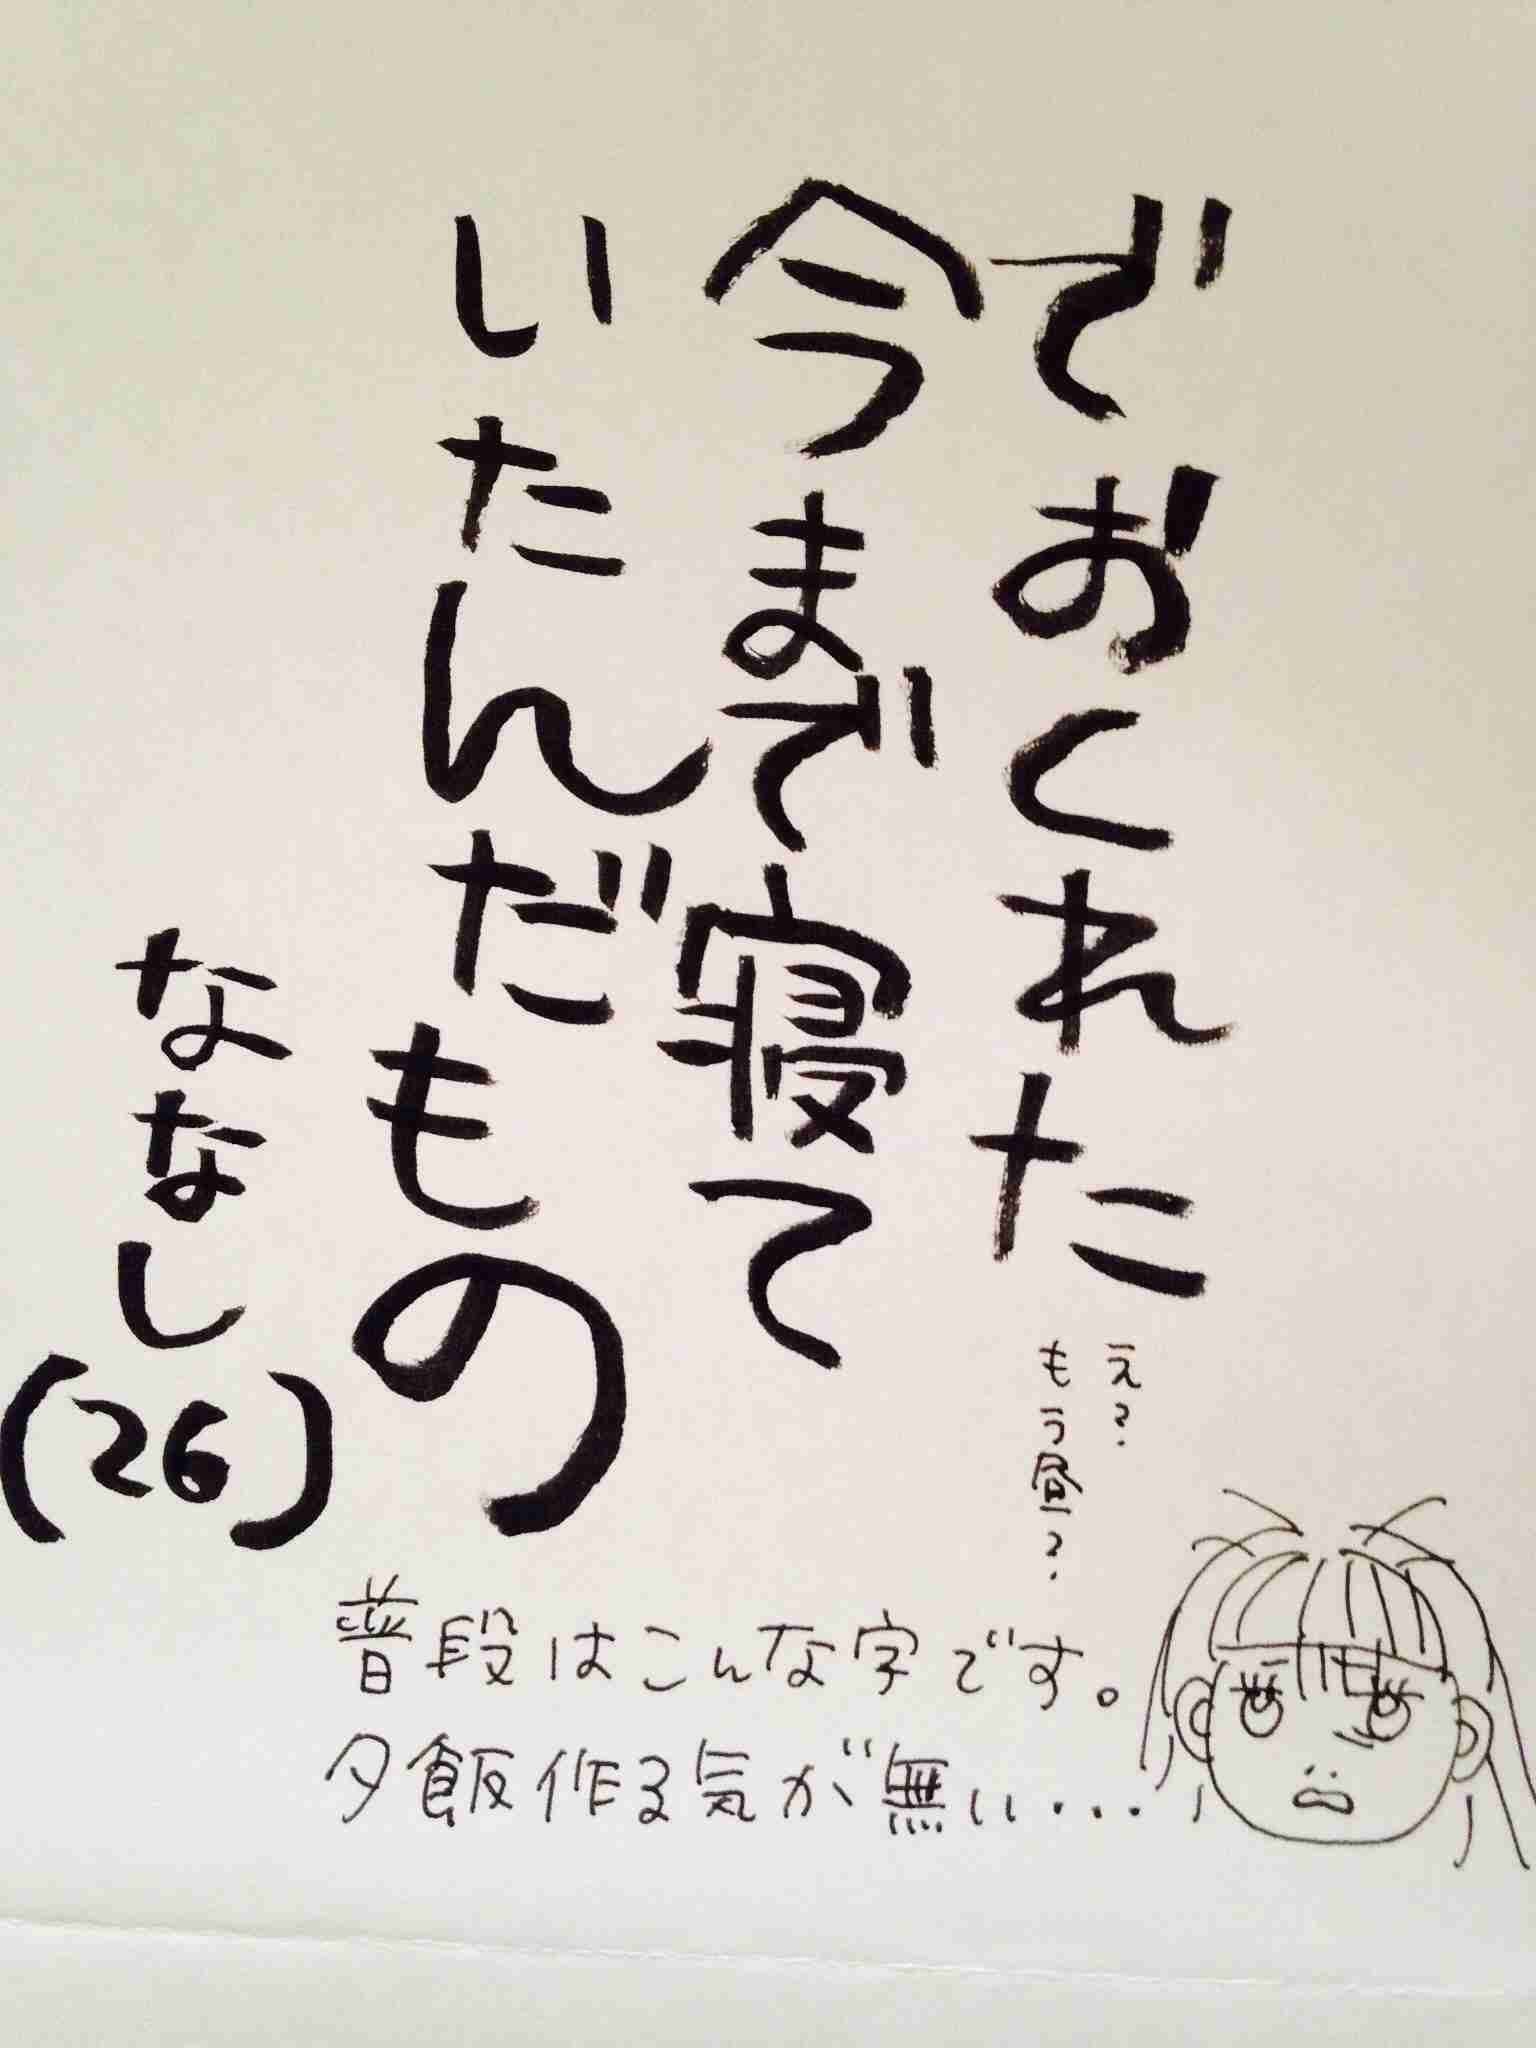 でおくれた
今まで寝て
いたんだもの
ななし(26)
え?
もう昼?
普段はこんな字です。
夕飯作る気が無い...